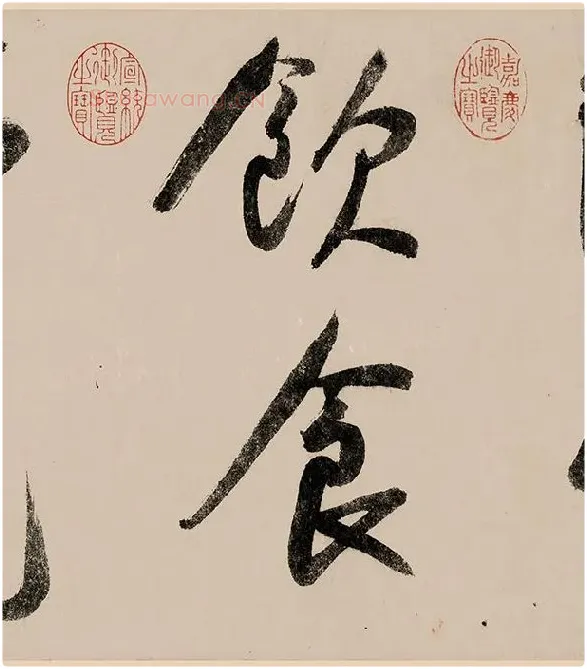 嘉慶御覽之寶
飲
食
宣統御覽之寶